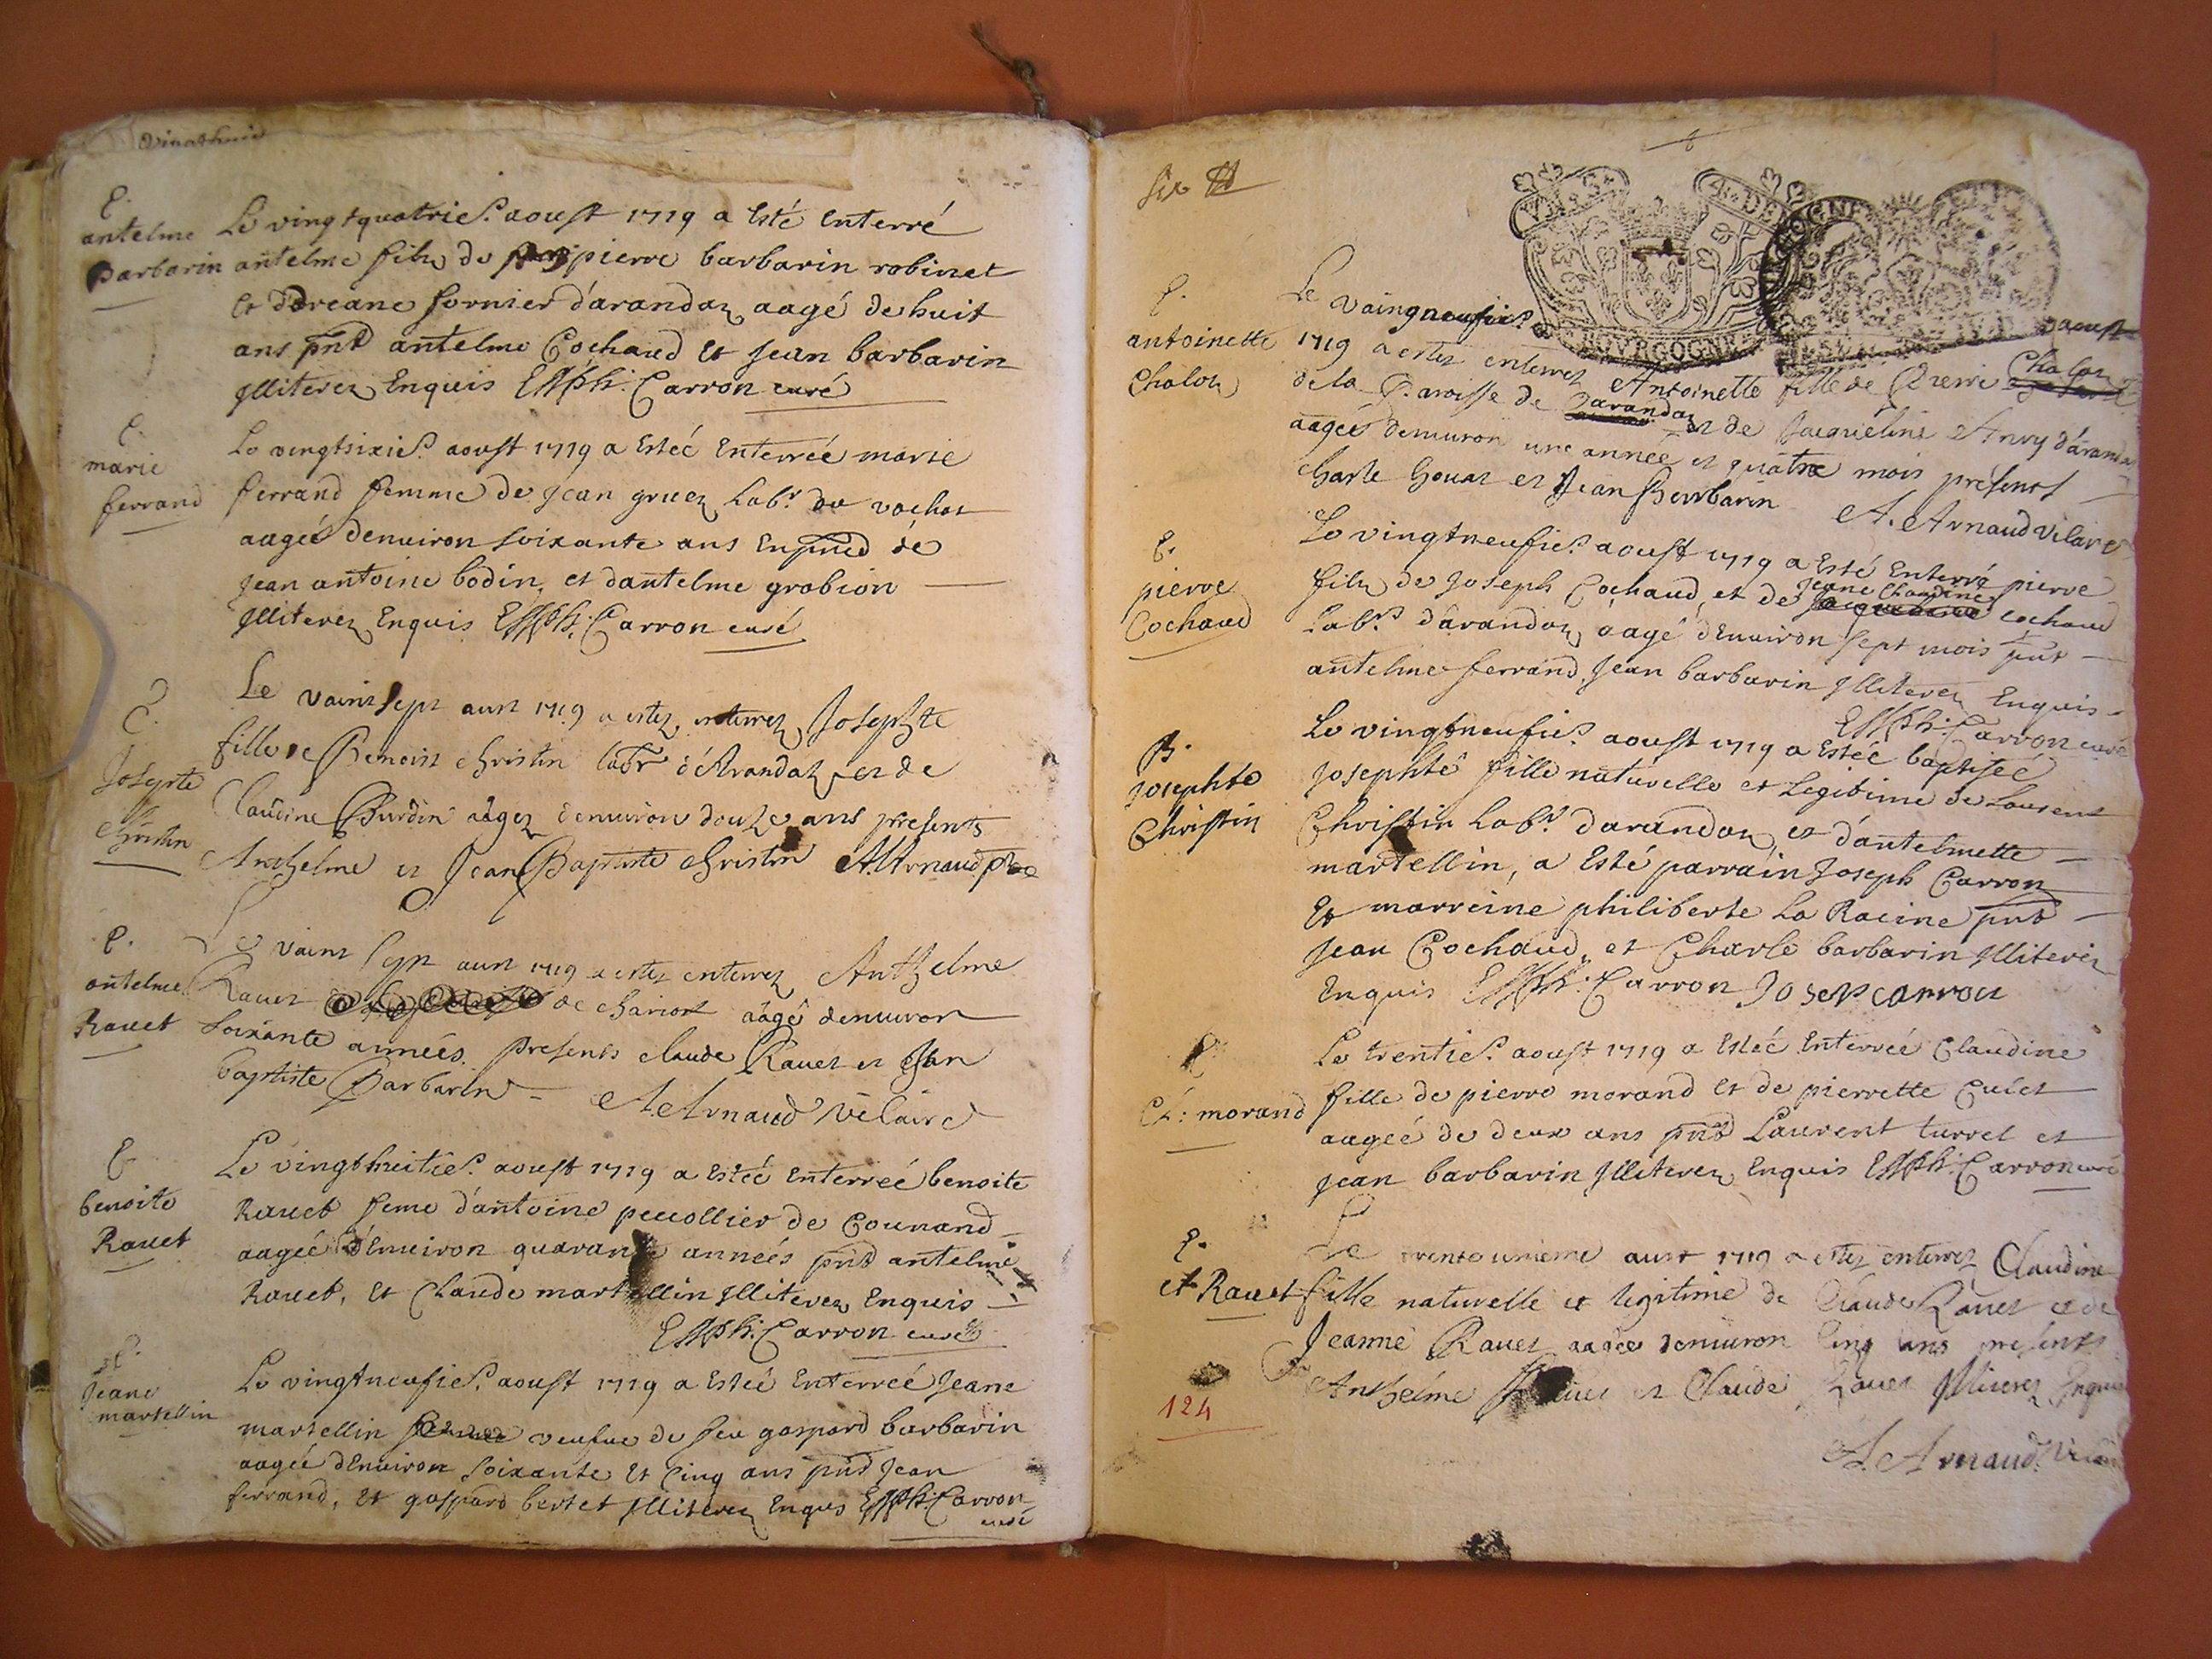 vingthuit
E.
antelme
barbarin
Le vingtquatrie. aoust 1719 a Esté Enterré
antelme fils de pierre barbarin robinet
Et d'oreane fornier d'arandaz aagé de huit
ans pnts antelme Cochaud Et Jean barbarin
Illiterez Enquis Carron curé
E.
marie
ferrand
Le vingtsixie. aoust 1719 a Estéé Enterréé marie
ferrand femme de Jean gruez Labr. du vachat
aagéé denuiron soixante ans En pnce de
Jean antoine bodin, et dantelme grobion
Illiterez Enquis Carron curé
E.
Josepte
Christin
Le vaint sept aust 1719 a estez enterrez Josephte
fille de Benoist christin labr d'Arandaz et de
Claudine Burdin aagez denuiron douze ans presents
Anthelme et Jean Baptiste christin A. Arnaud ptre
E.
antelme
Rauet
Le vaint sept aust 1719 a estez enterrez Anthelme
Rauet de chariot aagé denuiron
soixante années presents claude Rauet et Jean
baptiste Barbarin A. Arnaud vicaire
E
benoite
Rauet
Le vingthuitie. aoust 1719 a Estéé Enterréé benoite
Rauet feme d'antoine pecollier de Counand
aagéé d'Enuiron quarante années pnts antelme
Rauet, Et Claude martellin Illiterez Enquis
Carron curé
E.
Jeane
martellin
Le vingtneufie. aoust 1719 a Estéé Enterréé Jeane
martellin veufue de feu gaspard barbarin
aagéé dEnuiron soixante Et Cinq ans pnts Jean
ferrand, Et gaspard bertet Illiterez Enquis Carron
curé
six
GN. DE BOURGOGNE
E.
antoinette
Chalon
Le vaingneufie. daoust
1719 a estez enterrez Antoinette fille de Pierre Chalon
de la Paroisse de Darandaz et de Jacqueline Anry d'arandaz
aagéé denuiron une année et quatre mois presents
Charle Gouat et Jean Barbarin A. Arnaud vicaire
E.
pierre
Cochaud
Le vingtneufie. aoust 1719 a Esté Enterré pierre
fils de Joseph Cochaud, et de Jeane Claudine cochaud
Labr. d'arandaz, aagé dEnuiron sept mois pnts
antelme ferrand, Jean barbarin Illiterez Enquis
Carron curé
B.
Josephte
Christin
Le vingtneufie. aoust 1719 a Estéé baptiséé
Josephte fille naturelle et Legitime de Laurent
Christin Labr. d'arandaz, et d'antelmette
martellin, a Esté parrain Joseph Carron
Et marreine philiberte La Racine pnts
Jean Cochaud, et Charle barbarin Illiterez
Enquis Carron Josep carron
E
Cl: morand
Le trentie. aoust 1719 a Estéé Enterréé Claudine
fille de pierre morand Et de pierrette Cuiet
aagéé de deux ans pnts Laurent turrel et
Jean barbarin Illiterez Enquis Carron curé
E.
et Rauet
Le trente unieme aust 1719 a estez enterrez Claudine
fille naturelle et legitime de Claude Rauet et de
Jeanne Rauet aagée denuiron cinq ans presents
Anthelme Rauet et Claude Rauet Illiterez Enquis
A. Arnaud vicaire
124